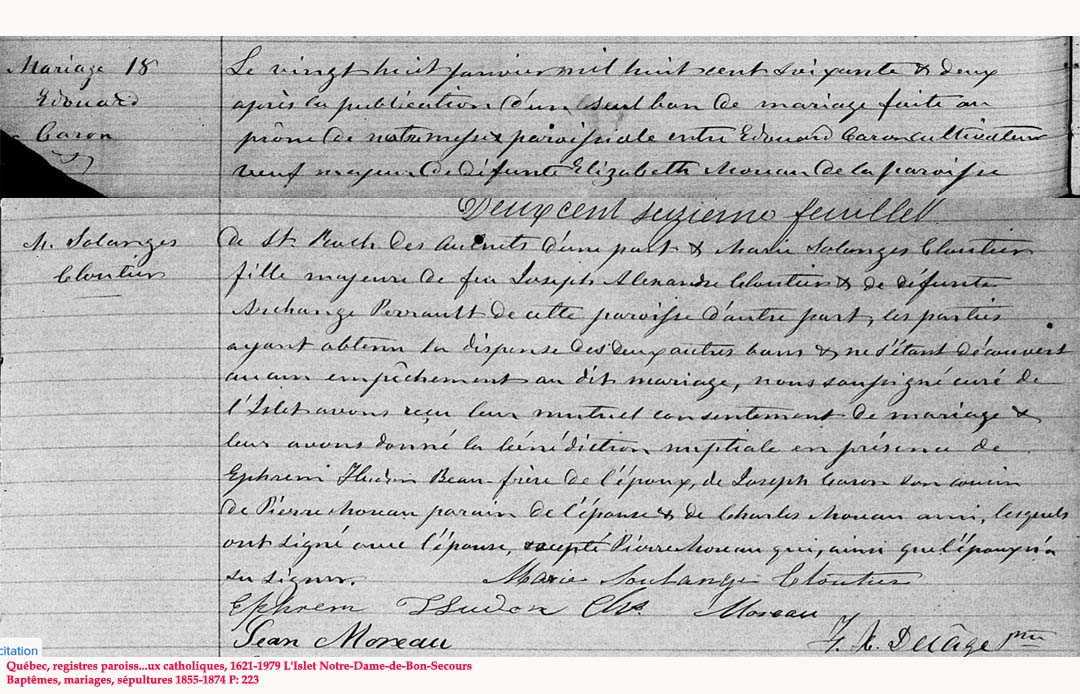 Mariage 18
Edouard
Caron
&
Le vingt huit janvier mil huit cent soixante & deux
après la publication d'un seul ban de mariage faite au
prône de notre messe paroissiale entre Edouard Caron cultivateur
veuf majeur de défunte Elizabeth Morean de la paroisse
Deux cent seizieme feuillet
M. Solanges
Cloutier
de St Roch des Aulnets d'une part & Marie Solanges Cloutier
fille majeure de feu Joseph Alexandre Cloutier & de défunte
Archange Perrault de cette paroisse d'autre part, les parties
ayant obtenu la dispense des deux autres bans & ne s'étant découvert
aucun empêchement au dit mariage, nous soussigné curé de
l'Islet avons reçu leur mutuel consentement de mariage &
leur avons donné la bénédiction nuptiale en présence de
Ephrem Hudon Beau-frère de l'époux, de Joseph Caron son cousin
de Pierre Moreau parain de l'épouse & de Charles Moreau ami, lesquels
ont signé avec l'épouse, excepté Pierre Moreau qui, ainsi que l'époux n'a
su signer.
Marie Soulange Cloutier
Ephrem Hudon Chs Moreau
Jean Moreau
F. X. Delâge ptre
citation
Québec, registres paroiss...ux catholiques, 1621-1979 L'Islet Notre-Dame-de-Bon-Secours
Baptêmes, mariages, sépultures 1855-1874 P: 223